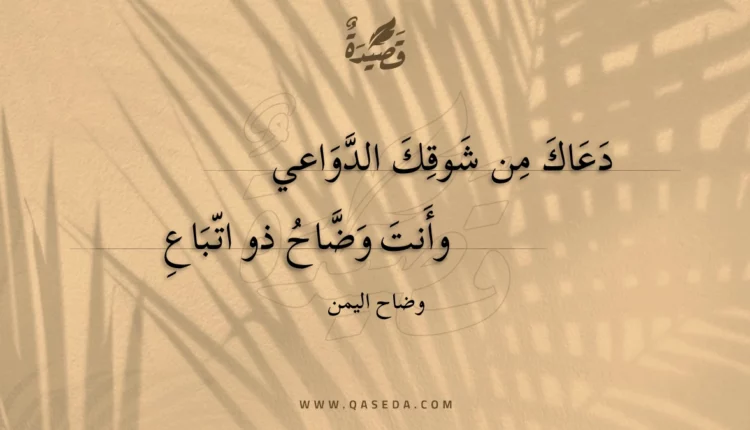 قَصِيدَةٌ
دَعَاكَ مِن شَوقِكَ الدَّوَاعي
وأَنتَ وَضَّاحُ ذو اتّبَاعِ
وضاح اليمن
WWW.QASEDA.COM